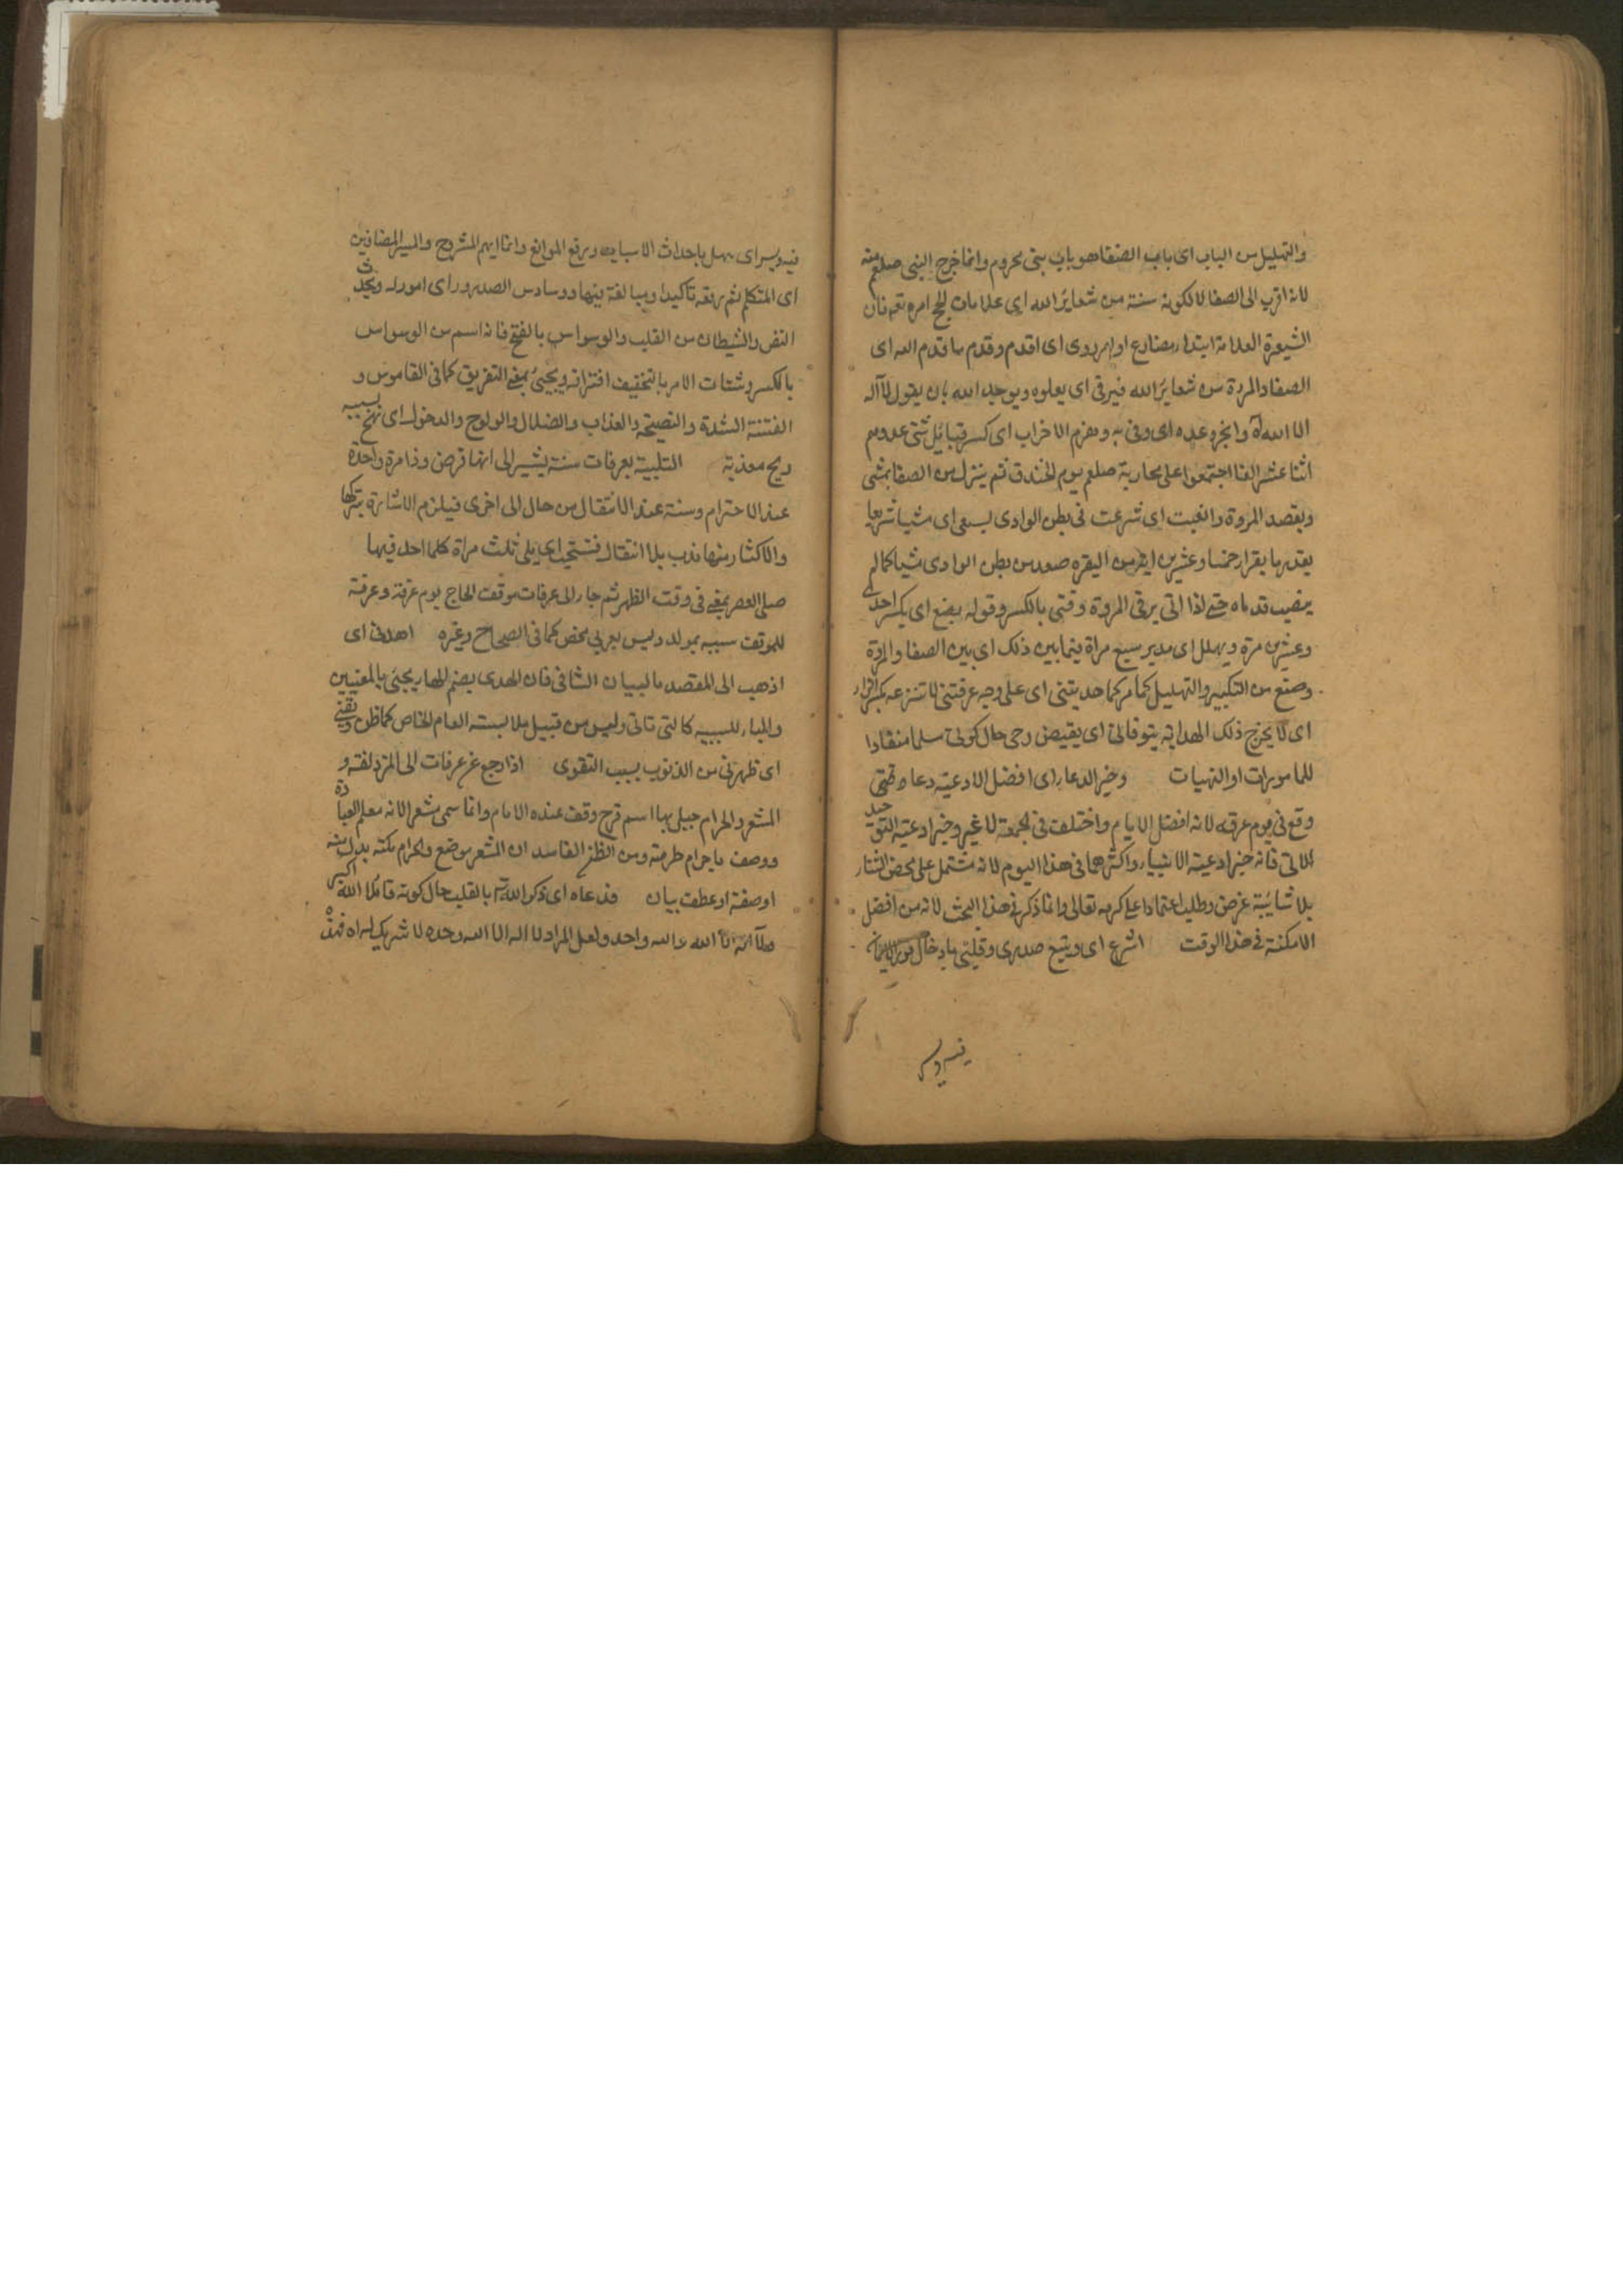 والتهليل من الباب اى باب الصفا هو باب بنى مخزوم وانما خرج النبى صلعم منه
لانه اقرب الى الصفا لا لكونه سنة من شعائر الله اى علامات الحج امره تعه فان
الشيعرة العلامة ابتدا مضارع او امر روى اى اقدم وقدم ما قدم الله اى
الصفا والمروة من شعائر الله فيرقى اى يعلوه ويوحد الله بان يقول لا اله
الا الله وانجز وعده اى وفى به وهزم الاحزاب اى كسر قبائل شتى عددهم
اثنا عشر الفا اجتمعوا على محاربة صلعم يوم الخندق ثم ينزل من الصفا يمشى
ويقصد المروة وانصبت اى شرعت فى بطن الوادى يسعى اى مشيا سريعا
يقدرها بقرار خمسا وعشرين اية من البقره صعد من بطن الوادى مشيا كما لم
ينصب قدماه حتى اذا اتى يرقى المروة وقنى بالكسر وقوله بضع اى يكسر احدى
وعشرين مرة ويهلل اى مدبر سبع مراة فيما بين ذلك اى بين الصفا والمروة
وصنع من التكبير والتهليل كما مر كما هديتنى اى على وجه عرفتنى لا تنزعه بكسر الزاء
اى لا يخرج ذلك الهداية يتوفانى اى يقبض روحى حال كونى مسلما منقادا
للمامورات او النهيات وخير الدعاء اى افضل الادعية دعاء
وقع فى يوم عرفه لانه افضل الايام واختلف فى الجمعة لا غير وخير ادعية التوحيد
الاتى فانه خير ادعية الانبياء واكثرهما فى هذا اليوم لانه مشتمل على محض الثناء
بلا شائبة غرض وطلب اعتمادا على كرمه تعالى وانما ذكر فى هذا البحث لانه من افضل
الامكنة فى هذا الوقت اشرح اى وسع صدرى وقلبى بادخال نور الايمان
فيه ويسر
فيه ويسر اى سهل باحداث الاسباب ورفع الموانع وانما ابهم المشروح والميسر المضافين
اى المتكلم ثم رفعه تاكيدا ومبالغة فيهما ووساوس الصدور اى امور له يحدث
النفس والشيطان من القلب والوسواس بالفتح فانه اسم من الوسواس
بالكسر وشتات الامر بالتخفيف افتراقه ويجئ بمعنى التفريق كما فى القاموس و
الفتنة الشدة والفضيحة والعذاب والضلال والولوج والدخول اى تهج بسببه
ريح موذية التلبية بعرفات سنة يشير الى انها فرض وذا مرة واحدة
عند الاحرام وسنة عند الانتقال من حال الى اخرى فيلزم الاشارة بتركها
والاكثار منها ندب بلا انتقال فتستحب اى يلى ثلث مراة كلما اخذ فيها
صلى العصر بمعنى فى وقت الظهر ثم جاء الى عرفات موقف الحاج يوم عرفة وعرفة
للموقف سببه بمولد وليس بعربى محض كما فى الصحاح وغيره اهدنى اى
اذهب الى المقصد بالبيان الشافى فان الهدى بضم الهاء يجئ بالمعنيين
والباء للسببيه كالتى تاتى وليس من قبيل ملابسته العام للخاص كما ظن ونقنى
اى طهرنى من الذنوب بسبب التقوى اذا رجع عن عرفات الى المزدلفة و
المشعر الحرام جبل بها اسم قزح وقف عنده الامام وانما سمى مشعر الانه معلم العبادة
ووصف بالحرام لحرمته ومن الظن الفاسد ان المشعر موضع والحرام مكنه بدل منه
او صفة او عطف بيان فدعاه اى ذكر الله تع بالقلب حال كونه قائلا الله اكبر
ولا اله الا الله والله واحد ولعل المراد لا اله الا الله وحده لا شريك له